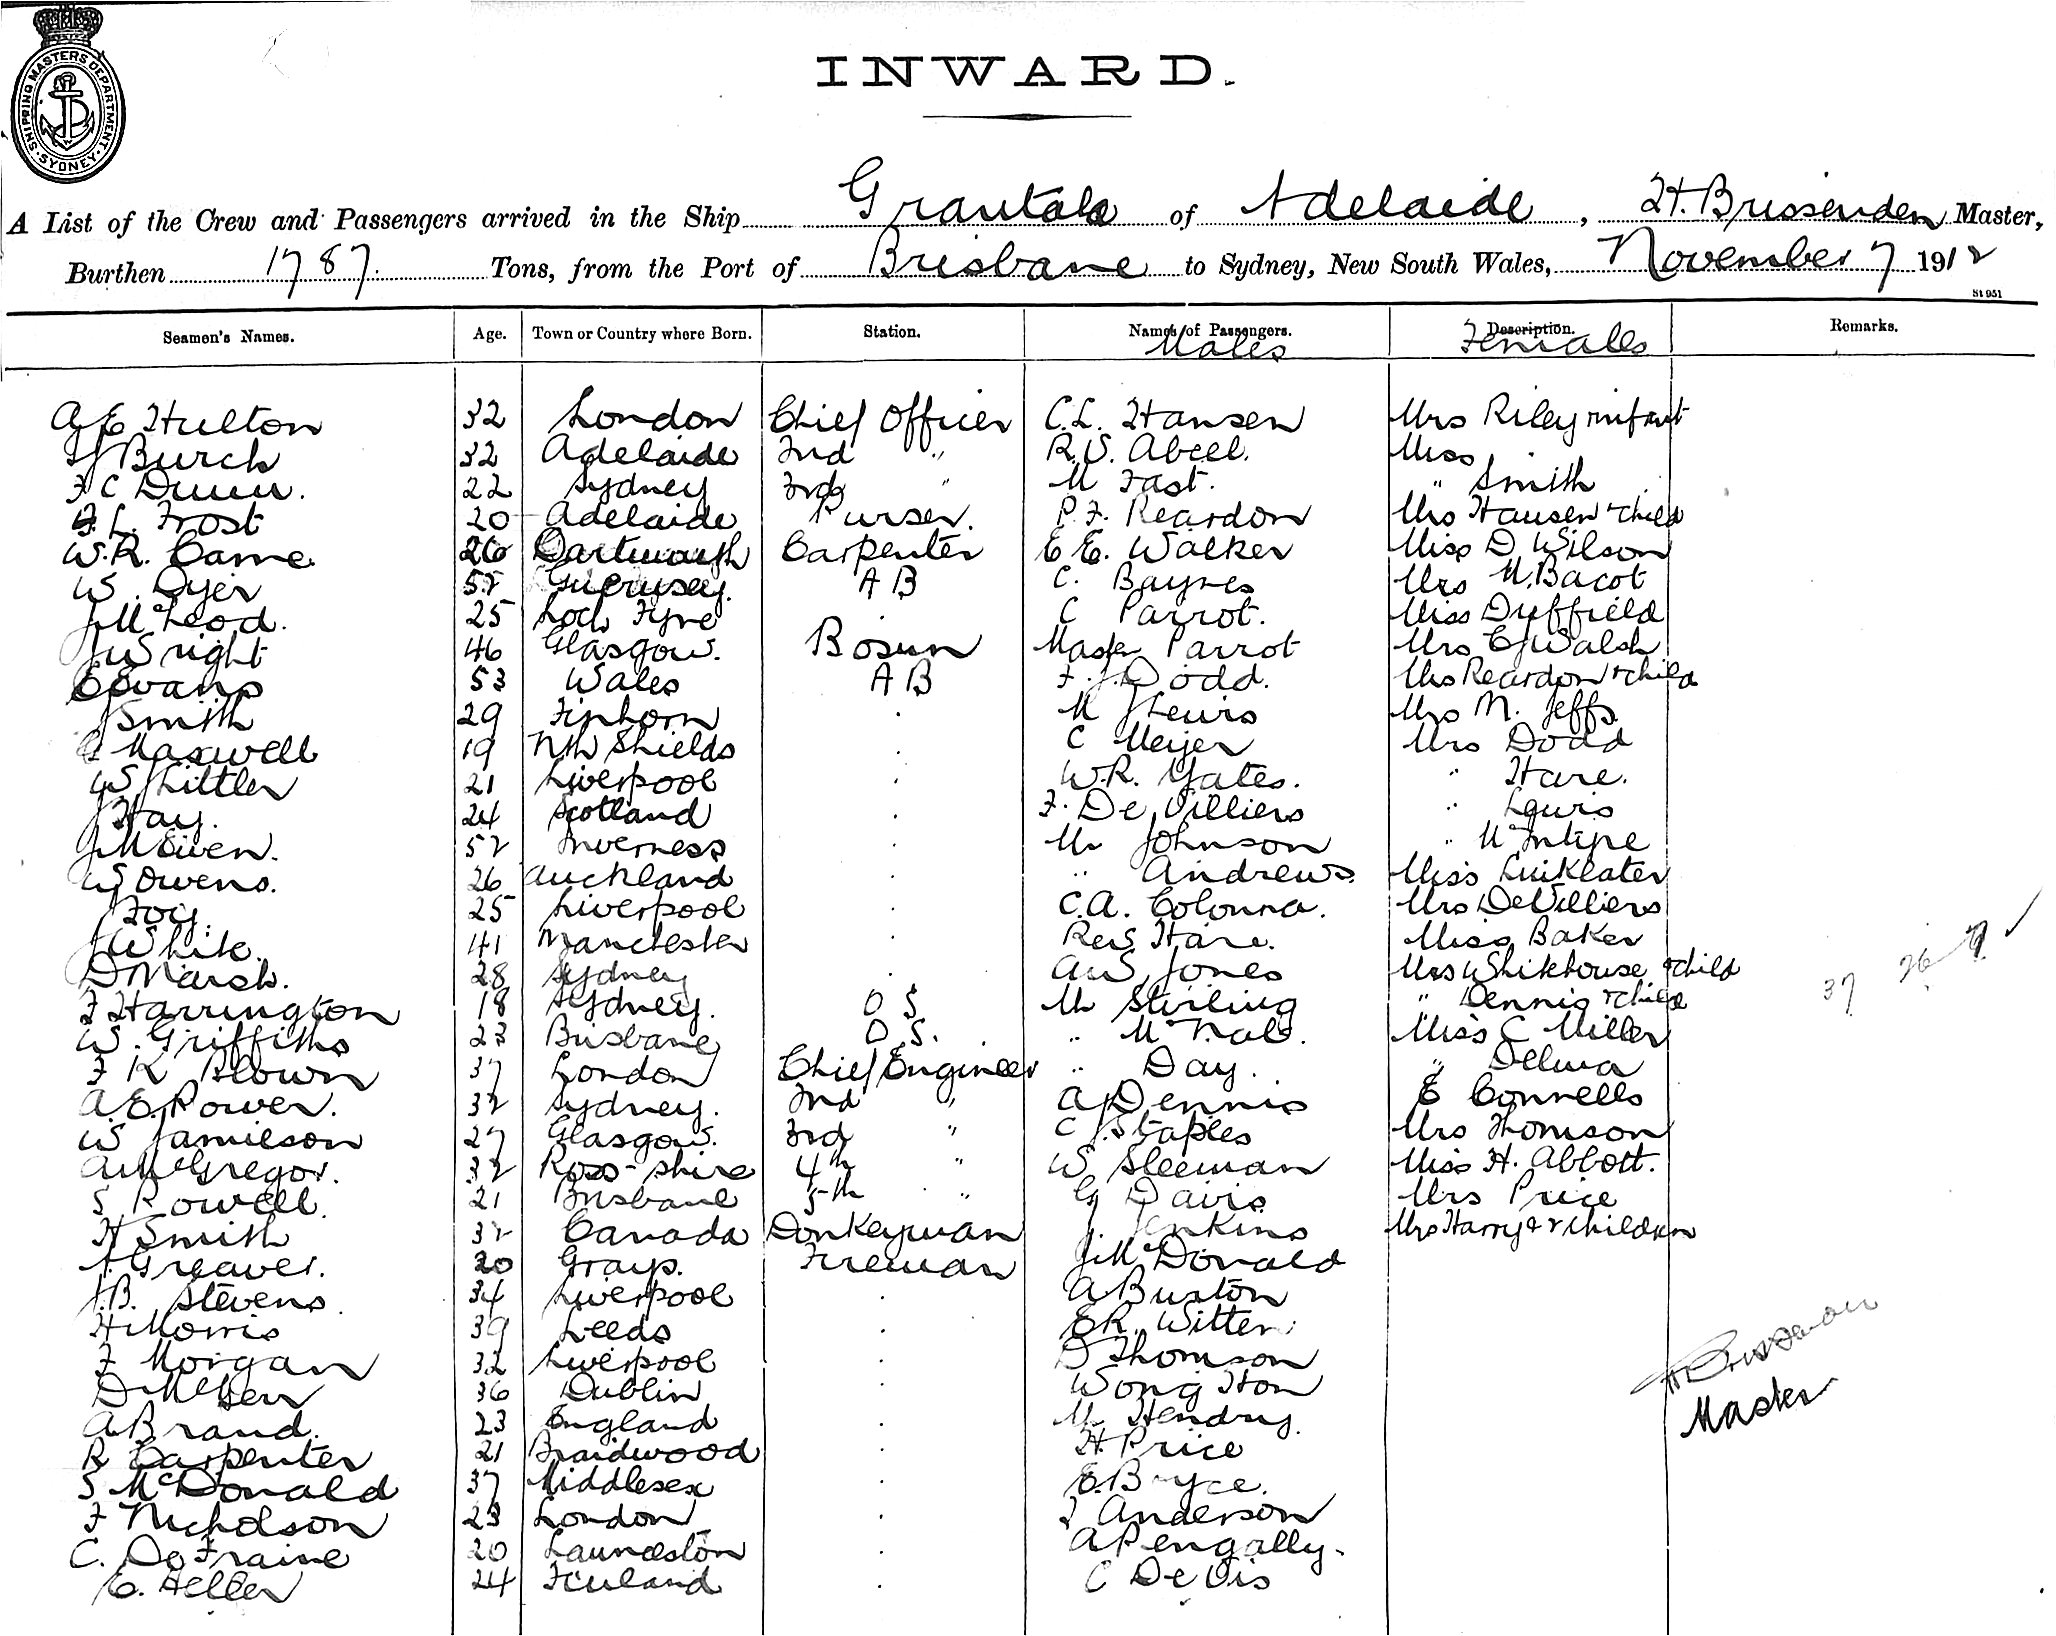 SHIPPING MASTERS DEPARTMENT
SYDNEY
INWARD.
A List of the Crew and Passengers arrived in the Ship Grantala of Adelaide, H. Brissenden Master,
Burthen 1787 Tons, from the Port of Brisbane to Sydney, New South Wales, November 7 1912
St 951
Seamen's Names. Age. Town or Country where Born. Station. Names of Passengers. Description. Remarks.
Males Females
A E Hulton 32 London Chief Officer C.L. Hansen Mrs Riley infant
Burch 32 Adelaide 2nd " R.S. Abell. Miss
F C Dunn. 22 Sydney 3rd " M Fast. " Smith
F.L. Frost 20 Adelaide Purser. P.F. Reardon Mrs Hansen & child
W.R. Came 26 Dartmouth Carpenter E E. Walker Miss D Wilson
W. Dyer 52 Guernsey. A B C. Baynes Mrs M. Bacot
J McLeod. 25 Loch Fyne C Parrot. Miss Duffield
J Wright 46 Glasgow. Bosun Master Parrot Mrs E J Walsh
E Evans 53 Wales A B F. J. Dodd. Mrs Reardon & child
J Smith 29 Finhorn . M J Lewis Mrs N. Jeffs
Maxwell 19 Nth Shields . C Meijer Mrs Dodd
W S Littler 21 Liverpool . W.R. Yates. " Hare.
J Hay. 24 Scotland . F. De Villiers " Lewis
J McEwen. 52 Inverness . Mr Johnson " McIntyre
W Owens. 26 Auckland . " Andrews. Miss
J Foy. 25 Liverpool . C.A. Colonna. Mrs DeVilliers
J White. 41 Manchester . Rev Hare. Miss Baker
D Marsh. 28 Sydney . A W Jones Mrs Whitehouse & child
F Harrington 18 Sydney. O S Mr Stirling " Dennis & child
W. Griffiths 23 Brisbane O.S. " McNab. Miss C Miller
F K Brown 37 London Chief Engineer " Day. " Delma
A. E. Power. 32 Sydney. 2nd " A J Dennis E Connells
W Jamieson 27 Glasgow. 3rd " C J. Staples Mrs Thomson
A McGregor. 32 Ross-shire 4th " W Sleeman Miss H. Abbott.
S Rowell. 21 Brisbane 5th " G Davis Mrs Price
H Smith 32 Canada Donkeyman J. Jenkins Mrs Harry & 2 children
A Greaves. 20 Grays. Fireman J. McDonald
J.B. Stevens. 34 Liverpool . A Buxton
H Morris 39 Leeds . E R. Witten
F Morgan 32 Liverpool . D Thomson
D 36 Dublin . Wong Hon
A Brand. 23 England . Mr Hendry.
R Carpenter 21 Braidwood . H. Price
S McDonald 37 Middlesex . E. Bryce.
F Nicholson 23 London . J Anderson
C. De Fraine 20 Launceston . A Pengally.
E. Heller 24 Finland . C De Vis
37 26
H Brissenden
Master